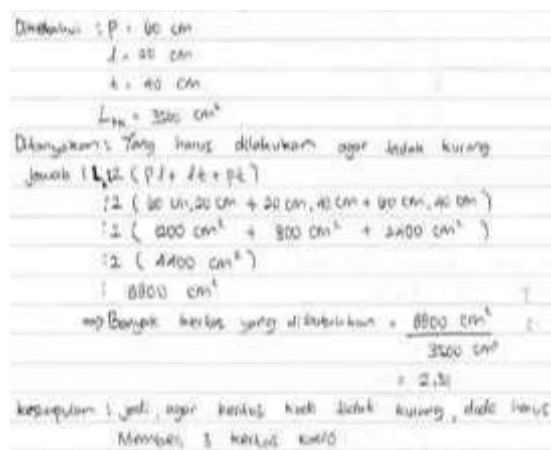 Diketahui : p = 60 cm
l = 20 cm
t = 40 cm
L = 3500 cm²
Ditanyakan : Yang harus dilakukan agar tidak kurang
Jawab : L : 2 (pl + lt + pt)
: 2 ( 60 cm . 20 cm + 20 cm . 40 cm + 60 cm . 40 cm )
: 2 ( 1200 cm² + 800 cm² + 2400 cm² )
: 2 ( 4400 cm² )
: 8800 cm²
=> Banyak kertas yang dibutuhkan = 8800 cm²
3500 cm²
= 2,51
kesimpulan : jadi, agar kertas kado tidak kurang, dado harus
Membeli 3 kertas kado